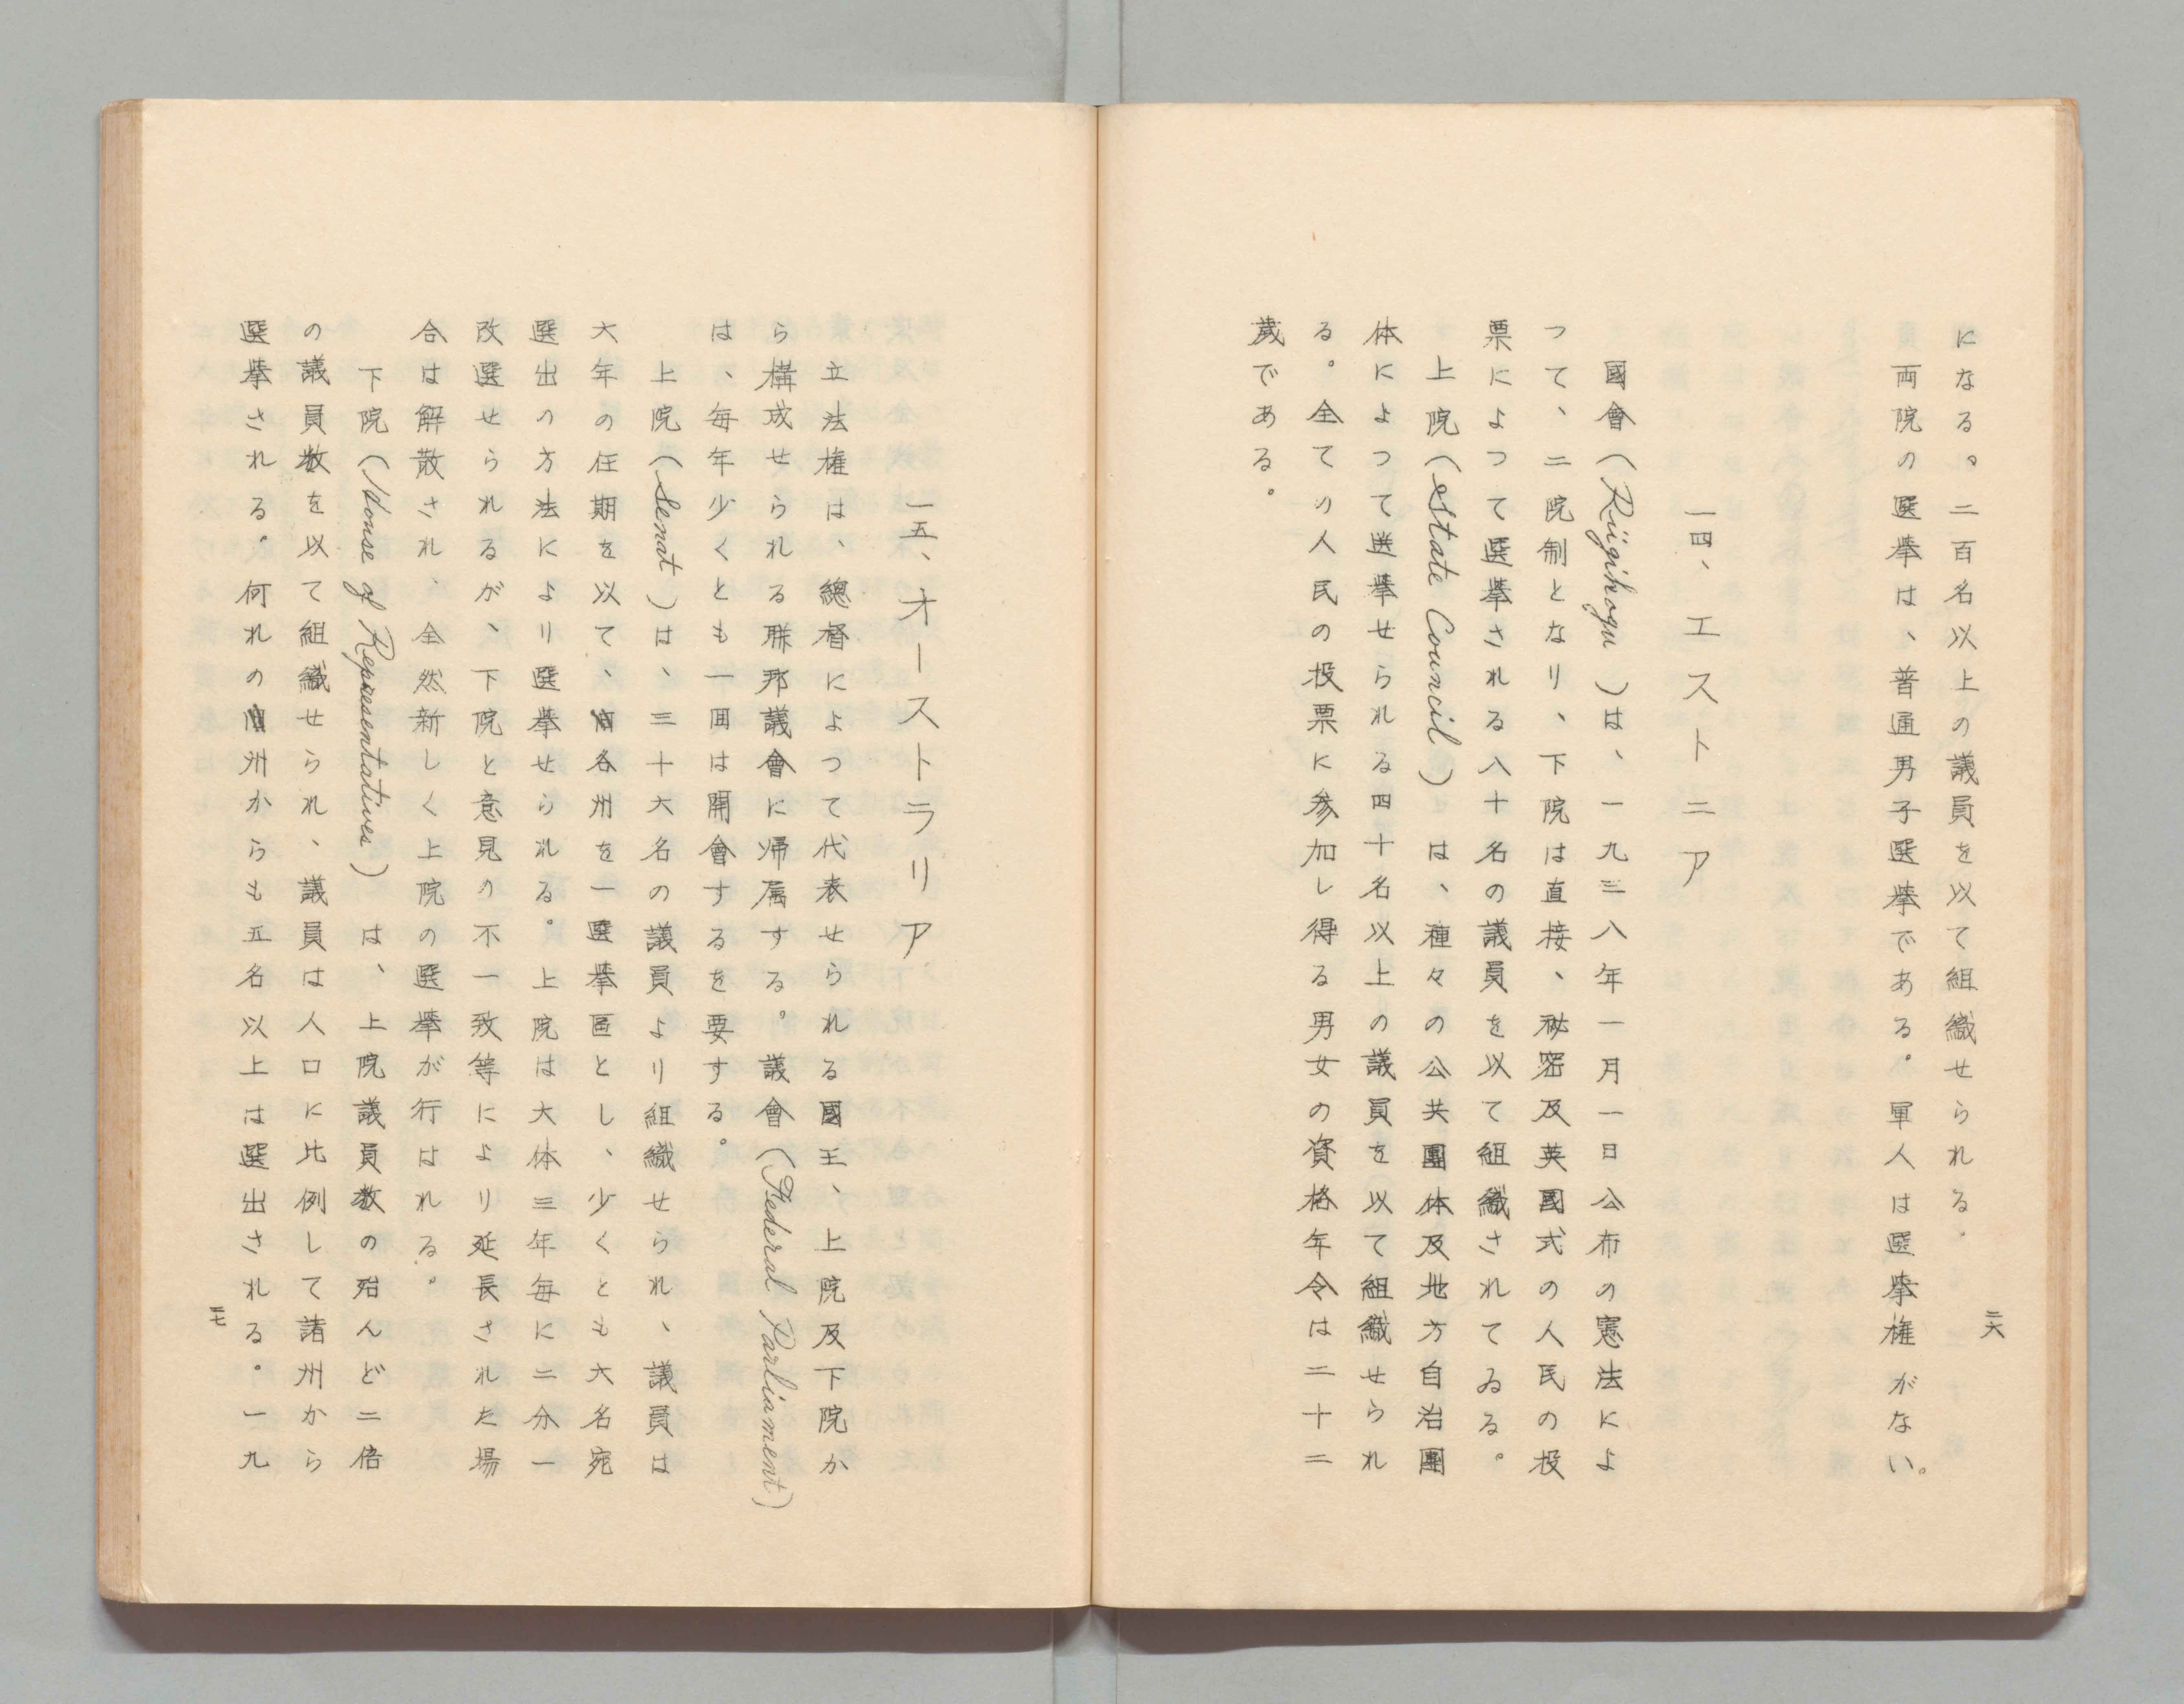 になる。二百名以上の議員を以て組織せられる。
両院の選挙は、普通男子選挙である。軍人は選挙権がない。
一四、エストニア
國會(Riigihogu)は、一九三八年一月一日公布の憲法によ
つて、二院制となり、下院は直接、祕密及英國式の人民の投
票によつて選挙される八十名の議員を以て組織されてゐる。
上院(State Council)は、種々の公共團体及地方自治團
体によつて選挙せられる四十名以上の議員を以て組織せられ
る。全ての人民の投票に参加し得る男女の資格年令は二十二
歲である。
二六
一五、オーストラリア
立法権は、總督によつて代表せられる國王、上院及下院か
ら構成せられる聯邦議會に帰属する。議會(Federal Parliament)
は、毎年少くとも一回は開會するを要する。
上院(Senat)は、三十六名の議員より組織せられ、議員は
六年の任期を以て、各州を一選挙區とし、少くとも六名宛
選出の方法により選挙せられる。上院は大体三年毎に二分一
改選せられるが、下院と意見の不一致等により延長された場
合は解散され、全然新しく上院の選挙が行はれる。
下院(House of Representatives)は、上院議員数の殆んど二倍
の議員数を以て組織せられ、議員は人口に比例して諸州から
選挙される。何れの州からも五名以上は選出される。一九
二七